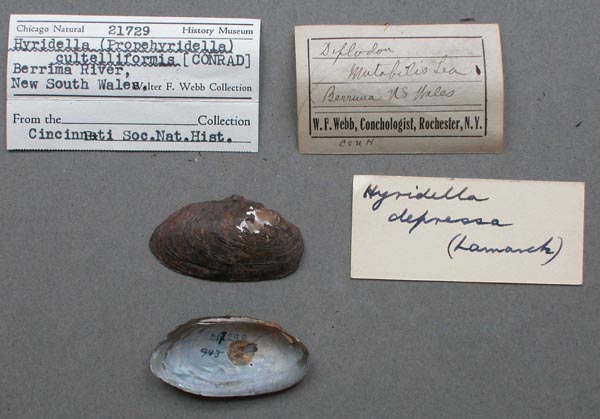 Chicago Natural 21729 History Museum
Hyridella (Propehyridella)
cultelliformis [CONRAD]
Berrima River,
New South Wales. Walter F. Webb Collection
From the Collection
Cincinnati Soc.Nat.Hist.
Diplodon
Mutabilis Lea
Berrima NS Wales
W. F. Webb, Conchologist, Rochester, N.Y.
Hyridella
depressa
(Lamarck)
943